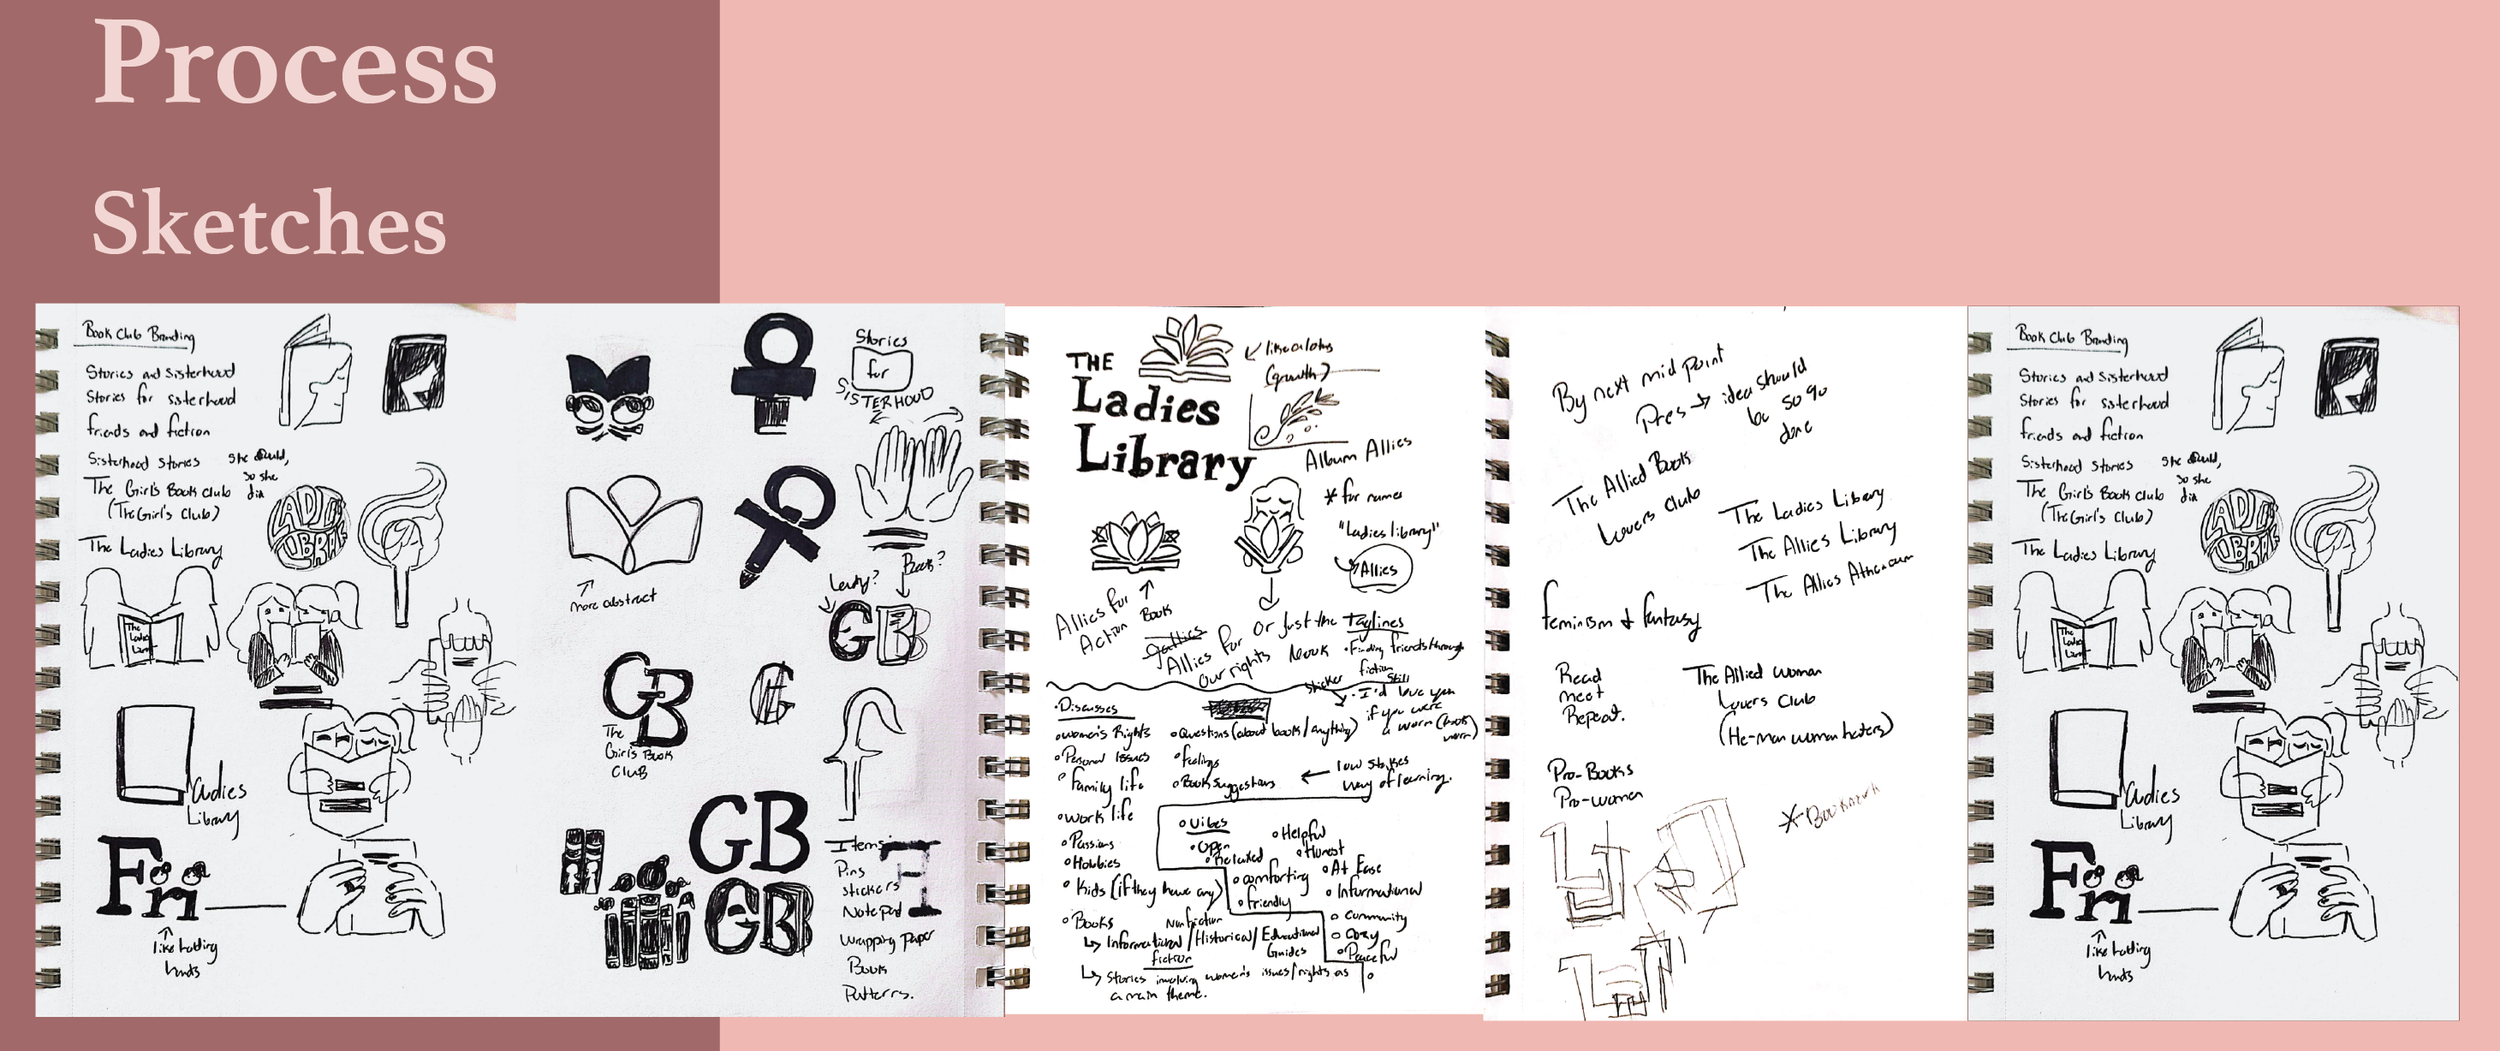 Process
Sketches
Book Club Branding
Stories and Sisterhood
Stories for sisterhood
friends and fiction
Sisterhood stories
she could,
so she
did
The Girl's Book club
(The Girl's Club)
LADIES
LIBRARY
The Ladies Library
The
Ladies
Library
Ladies
Library
Fri
like holding
hands
Stories
for
SISTERHOOD
more abstract
Lady?
Book?
GB
GB
The
Girl's Book
CLUB
GB
GB
Items
Pins
stickers
Notepad
wrapping paper
Book
Patterns.
THE
Ladies
Library
like a lotus
(growth)
Album Allies
* for names
"Ladies library"
Allies
Allies for
Action
Book
Allies for
our rights
Or just the
book
Taglines
• Finding friends through
fiction
sticker
• I'd still love you
if you were
a worm (book
worm)
• Discusses
• women's Rights
• Personal Issues
• Family life
• work life
• Passions
• Hobbies
• Kids (if they have any)
• Books
Nonfiction
↳ Informational / Historical / Educational
Guides
fiction
↳ Stories involving women's issues/rights as
a main theme.
• Questions (about books/anything)
• feelings
• Book Suggestions
← low stakes
way of learning.
• Vibes
• Open
• Relaxed
• comforting
• friendly
• Helpful
• Honest
• At Ease
• Informational
• Community
• Cozy
• Peaceful
By next mid point
Pres → idea should
be 50 90
done
The Allied Book
Lovers Club
The Ladies Library
The Allies Library
The Allies Athenaeum
feminism & fantasy
Read
meet
Repeat.
The Allied woman
Lovers Club
(He-man woman haters)
Pro-Books
Pro-women
* Bookmark
Book Club Branding
Stories and Sisterhood
Stories for sisterhood
friends and fiction
Sisterhood stories
she could,
so she
did
The Girl's Book club
(The Girl's Club)
LADIES
LIBRARY
The Ladies Library
The
Ladies
Library
Ladies
Library
Fri
like holding
hands